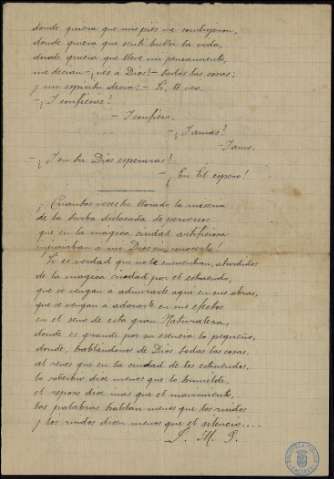 donde quiera que mis pies me condujeron,
donde quiera que sentí bullir la vida,
donde quiera que llevé mi pensamiento,
me decían - ¿ves a Dios? - todas las cosas;
y mi espíritu decía: - Sí, le veo.
- ¿Y confiesas?
- Y confieso.
- ¿Y amas?
- Y amo.
- ¿Y en tu Dios esperarás?
- ¡En Él espero!
¡Cuántas veces he llorado la miseria
de la turba desdichada de
que en la mágica ciudad artificiosa
a mi Dios sin conocerlo!
Si es verdad que no le encuentran, aturdidos
de la mágica ciudad por el estruendo,
que se vengan a admirarle aquí en sus obras,
que se vengan a adorarle en sus efectos
en el seno de esta gran Naturaleza,
donde es grande por su esencia lo pequeño,
donde, hablándonos de Dios todas las cosas,
al revés que en la ciudad de los estruendos,
lo soberbio dice menos que lo humilde,
el reposo dice más que el movimiento,
las palabras hablan menos que los ruidos
y los ruidos dicen menos que el silencio....